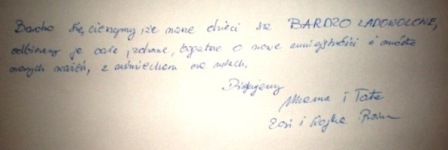 Bardzo się cieszymy, że nasze dzieci są BARDZO ZADOWOLONE,
odbieramy je całe, zdrowe, bogatsze o nowe umiejętności i
nowych, z uśmiechem na ustach.
Dziękujemy
Mama i Tata
Zosi i